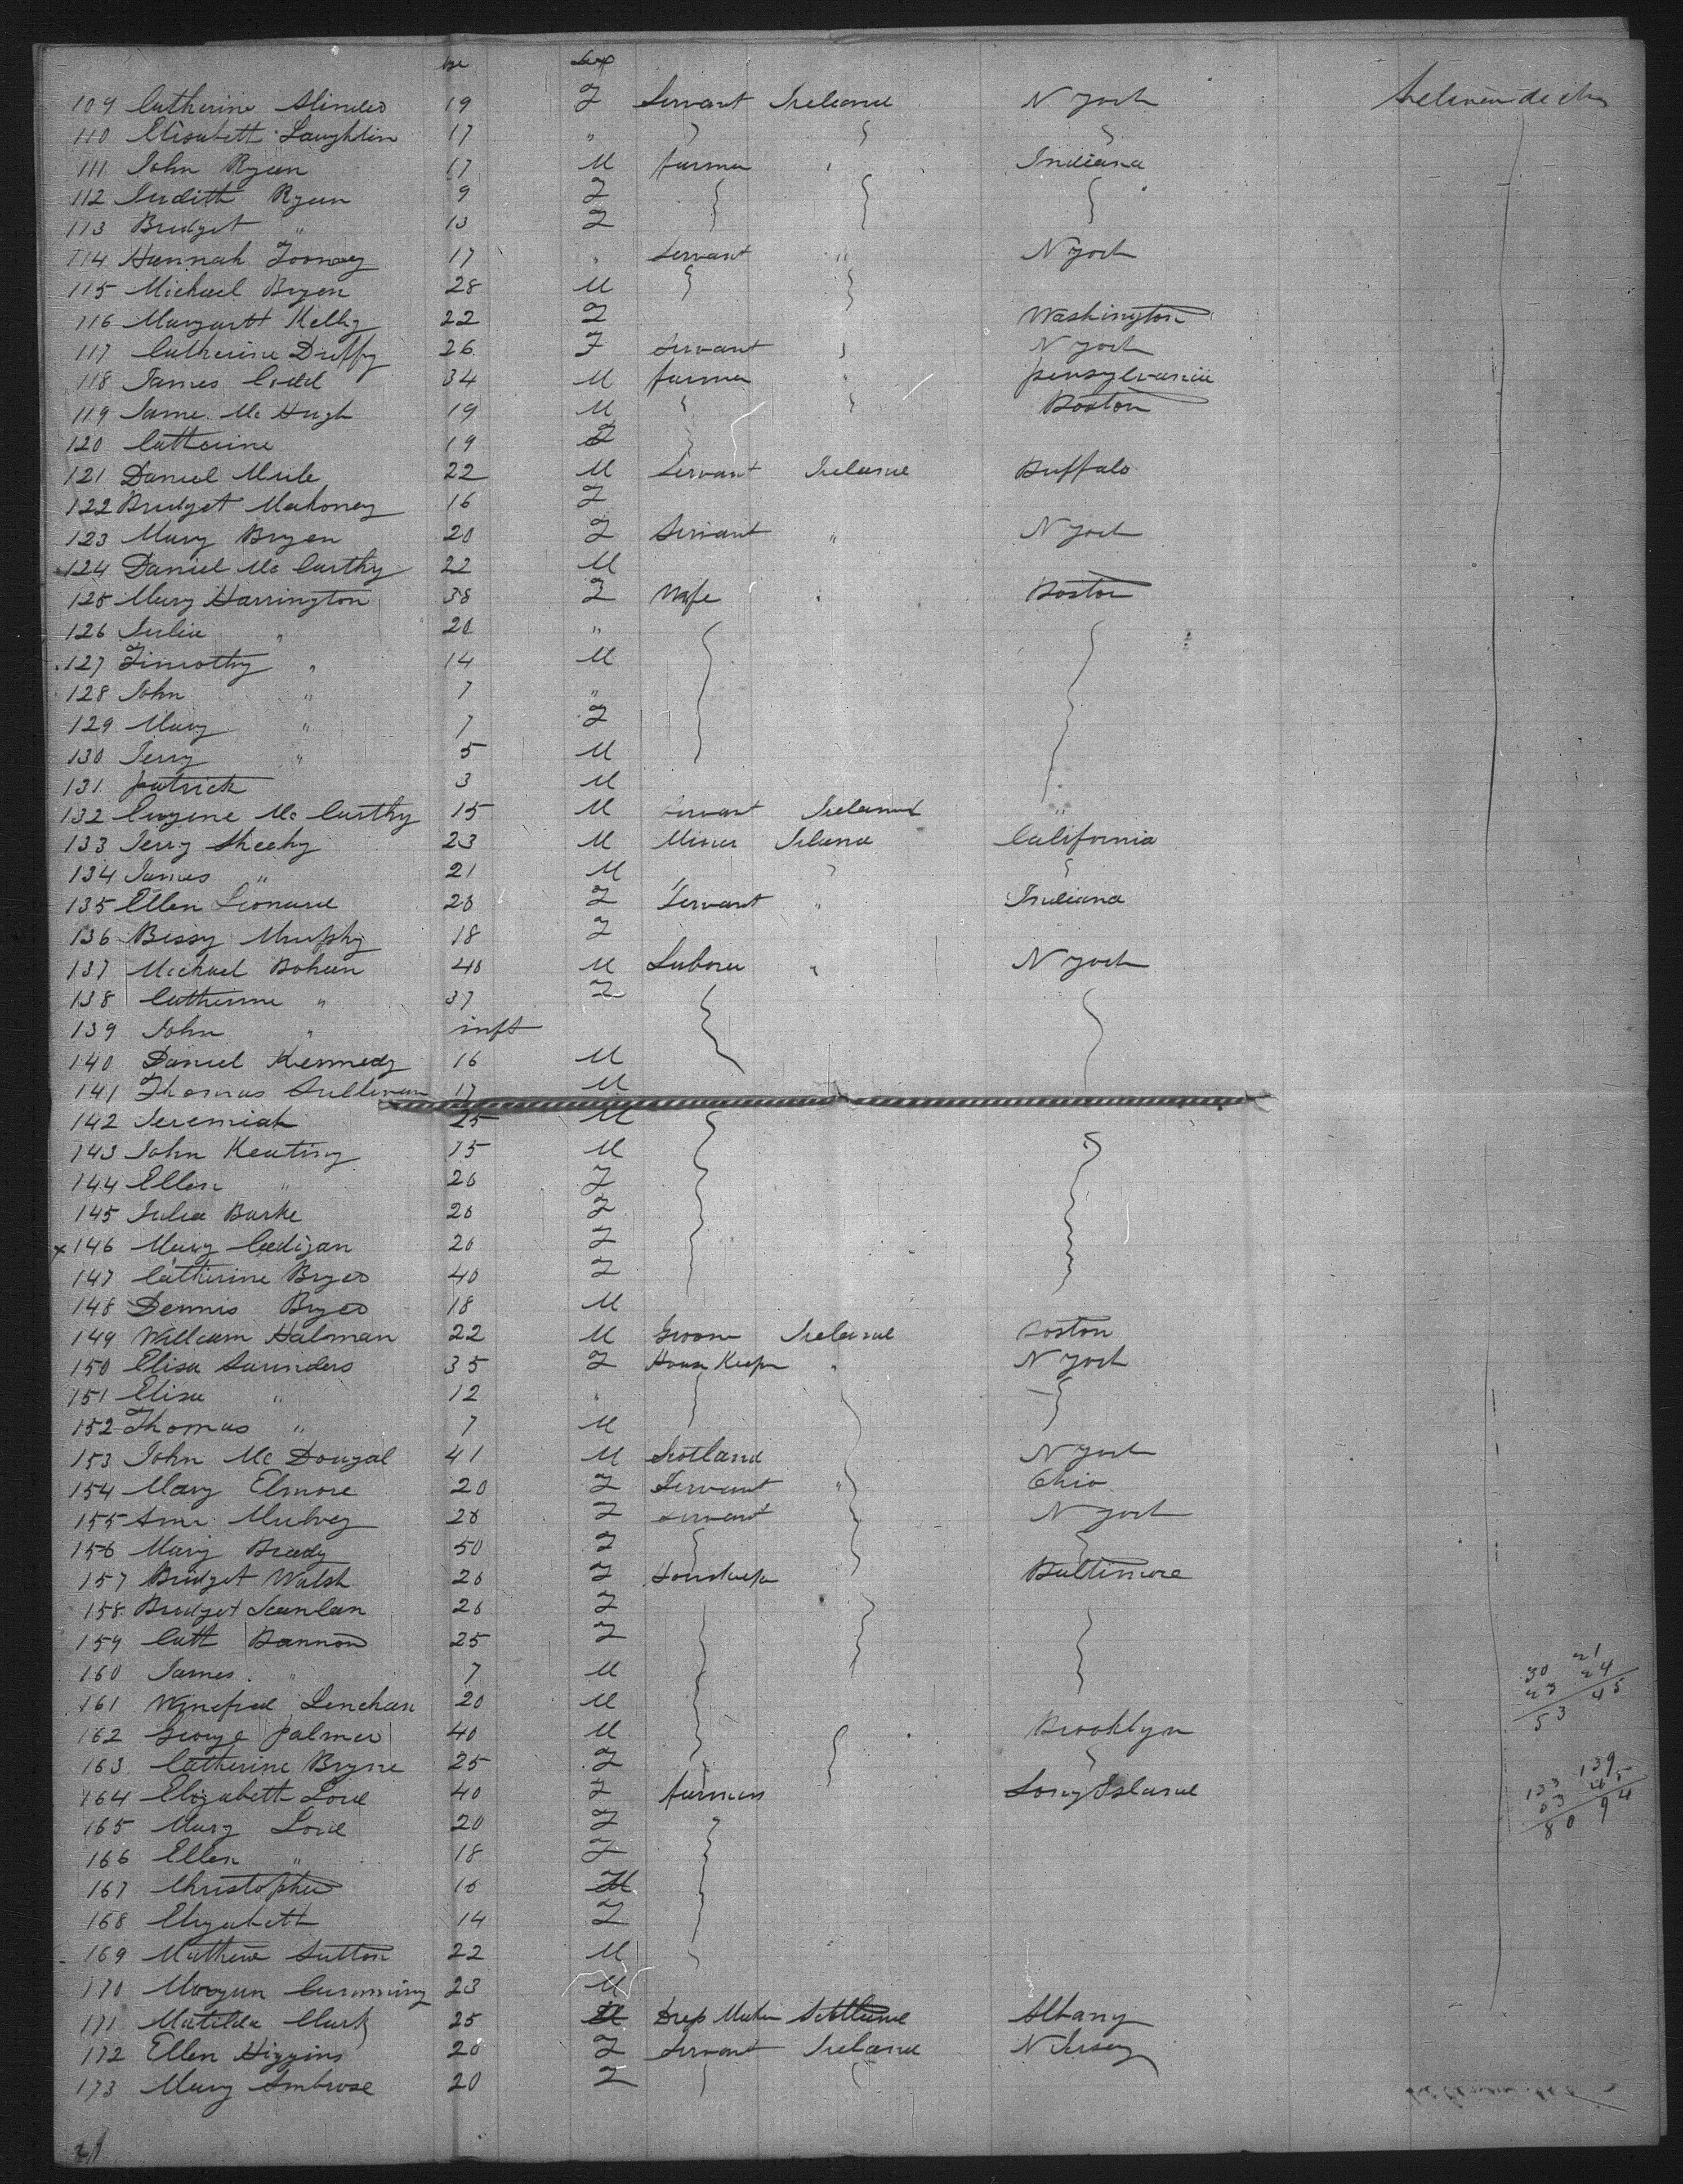 Sex
109 Catherine 19 F Servant Ireland N York
110 Elisabett Laughlin 17 "
111 John Ryan 17 M farmer " Indiana
112 Judith Ryan 9 F
113 Bridget " 13 F
114 Hannah Toomey 17 " Servant " N York
115 Michael Bryen 28 M
116 Margartt Kelly 22 F Washington
117 Catherine Duffy 26 F Servant N York
118 James 34 M farmer " pensylvania
119 Jame Mc Hugh 19 M Boston
120 Catterine 19 F
121 Daniel 22 M Servant Ireland Buffalo
122 Bridget Mahoney 16 F
123 Mary Bryen 20 F Servant " N York
124 Daniel Mc Carthy 22 M
125 Mary Harrington 38 F Wife " Boston
126 Julia " 20 "
127 Timothy " 14 M
128 John " 7 "
129 Mary " 7 F
130 Jerry " 5 M
131 patrick 3 M
132 Eugene Mc Carthy 15 M Servant Ireland "
133 Jerry Sheehy 23 M Miner Ireland California
134 James " 21 M
135 Ellen Leonard 20 F Servant " Indiana
136 Bessy Murphy 18 F
137 Michael Boheen 40 M Laborer " N York
138 Catherine " 37 F
139 John " inft
140 Daniel Kennedy 16 M
141 Thomas Sullivan 17 M
142 Jeremiah 25 M
143 John Keating 15 M
144 Ellen " 20 F
145 Julia Burke 20 F
x 146 Mary Cadigan 20 F
147 Catherine 40 F
148 Dennis 18 M
149 William Halman 22 M Groom Ireland Boston
150 Elisa Saunders 35 F House Keeper " N York
151 Elisa " 12 "
152 Thomas " 7 M
153 John Mc Dougal 41 M Scotland N York
154 Mary Elmore 20 F Servant " Ohio
155 Ann Mulvey 20 F Servant N York
156 Mary Brady 50 F
157 Bridget Walsh 20 F Baltimore
158 Bridget Scanlan 20 F
159 Catt Bannon 25 F
160 James " 7 M
161 Winefred Lenehan 20 M
162 George palmer 40 M Brooklyn
163 Catherine Bryne 25 F
164 Elizabett Lord 40 F farmers Long Island
165 Mary Lord 20 F
166 Ellen " 18 F
167 Christopher 16 M
168 Elizabett 14 F
169 Mathew Sutton 22 M
170 Morgan Cumming 23 M
171 Matilda Clark 25 Dress Maker Albany
172 Ellen Higgins 20 F Servant Ireland N Jersey
173 Mary Ambrose 20 F
30 21
23 24
53 45
133 139
53 45
80 94